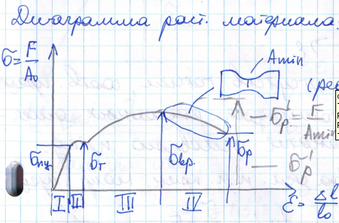 Диаграмма раст. материала
σ = F/A₀
Amin
(ре
σпц
σт
σвр
σр
σр' = F/Amin
σр'
I II III IV
ε = Δl/l₀